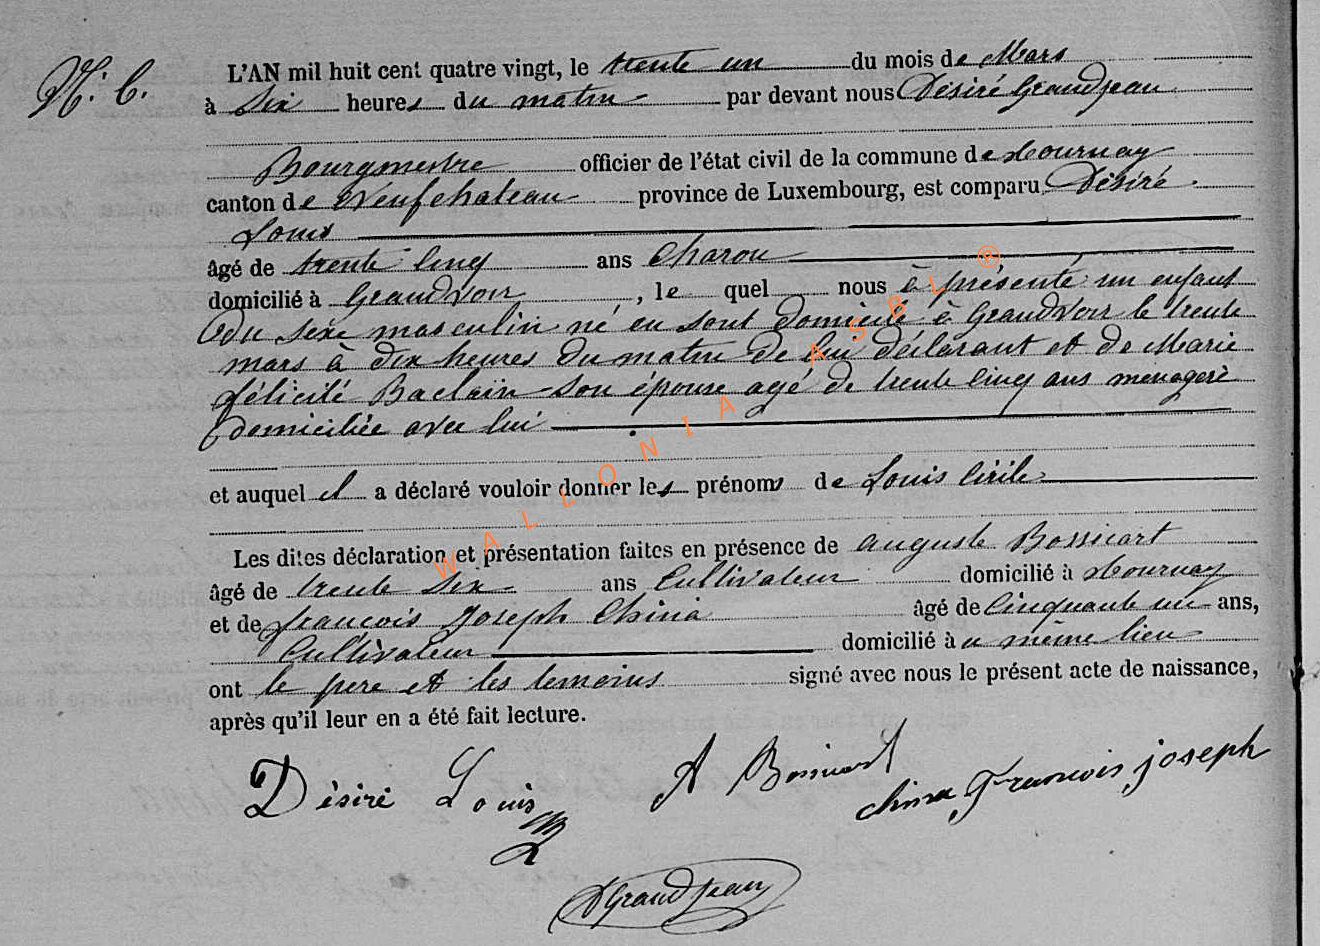 N. 6.
L'AN mil huit cent quatre vingt, le trente un du mois de Mars
à Six heures du matin par devant nous Désiré Grandjean
Bourgmestre officier de l'état civil de la commune de Tournay
canton de Neufchateau province de Luxembourg, est comparu Désiré
Louis
âgé de trente cinq ans Charou
domicilié à Grandvoir, le quel nous à présenté un enfant
du sexe masculin né en sont domicile à Grandvoir le trente
mars à dix heures du matin de lui déclarant et de Marie
félicité Baclain son épouse agé de trente cinq ans menagere
domiciliée avec lui
et auquel il a déclaré vouloir donner les prénoms de Louis Cirile
Les dites déclaration et présentation faites en présence de auguste Bossicart
âgé de trente six ans Cultivateur domicilié à Tournay
et de françois Joseph China âgé de Cinquante un ans,
Cultivateur domicilié à u même lieu
ont le pere et les temoins signé avec nous le présent acte de naissance,
après qu'il leur en a été fait lecture.
Désiré Louis A Bossicart china François joseph
DGrandjean
WALLONIA ASBL ®